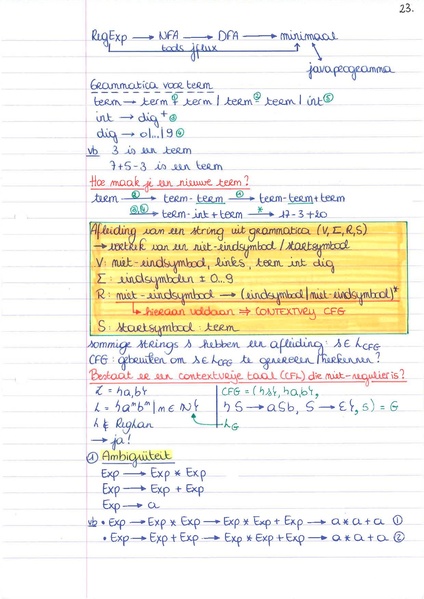 23.
RegExp → NFA → DFA → minimaal
tools jflux
javaprogramma
Grammatica voor term
term → term + ① term | term - ② term | int ③
int → dig + ④
dig → 0|...|9 ④
vb 3 is een term
7+5-3 is een term
Hoe maak je een nieuwe term?
term → term - term → term - term + term
→ term - int + term →* 17-3+20
Afleiding van een string uit grammatica (V, Σ, R, S)
→ vertrek van een niet-eindsymbool / startsymbool
V: niet-eindsymbool, links, term int dig
Σ: eindsymbolen ± 0..9
R: niet-eindsymbool → (eindsymbool | niet-eindsymbool)*
↳ hieraan voldaan ⇒ CONTEXTVRIJ CFG
S: startsymbool term
sommige strings s hebben een afleiding: s ∈ L_CFG
CFG: gebruiken om s ∈ L_CFG te genereren / herkennen?
Bestaat er een contextvrije taal (CFL) die niet-regulier is?
Σ = {a,b} CFG = ({S}, {a,b},
L = {aⁿbⁿ | n ∈ ℕ} {S → aSb, S → ε}, S) = G
L ∉ RegLan L_G
→ ja!
① Ambiguïteit
Exp → Exp * Exp
Exp → Exp + Exp
Exp → a
vb • Exp → Exp * Exp → Exp * Exp + Exp → a * a + a ①
• Exp → Exp + Exp → Exp * Exp + Exp → a * a + a ②